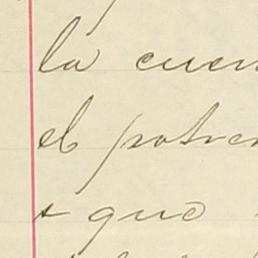 la cuen
el potre
+ que